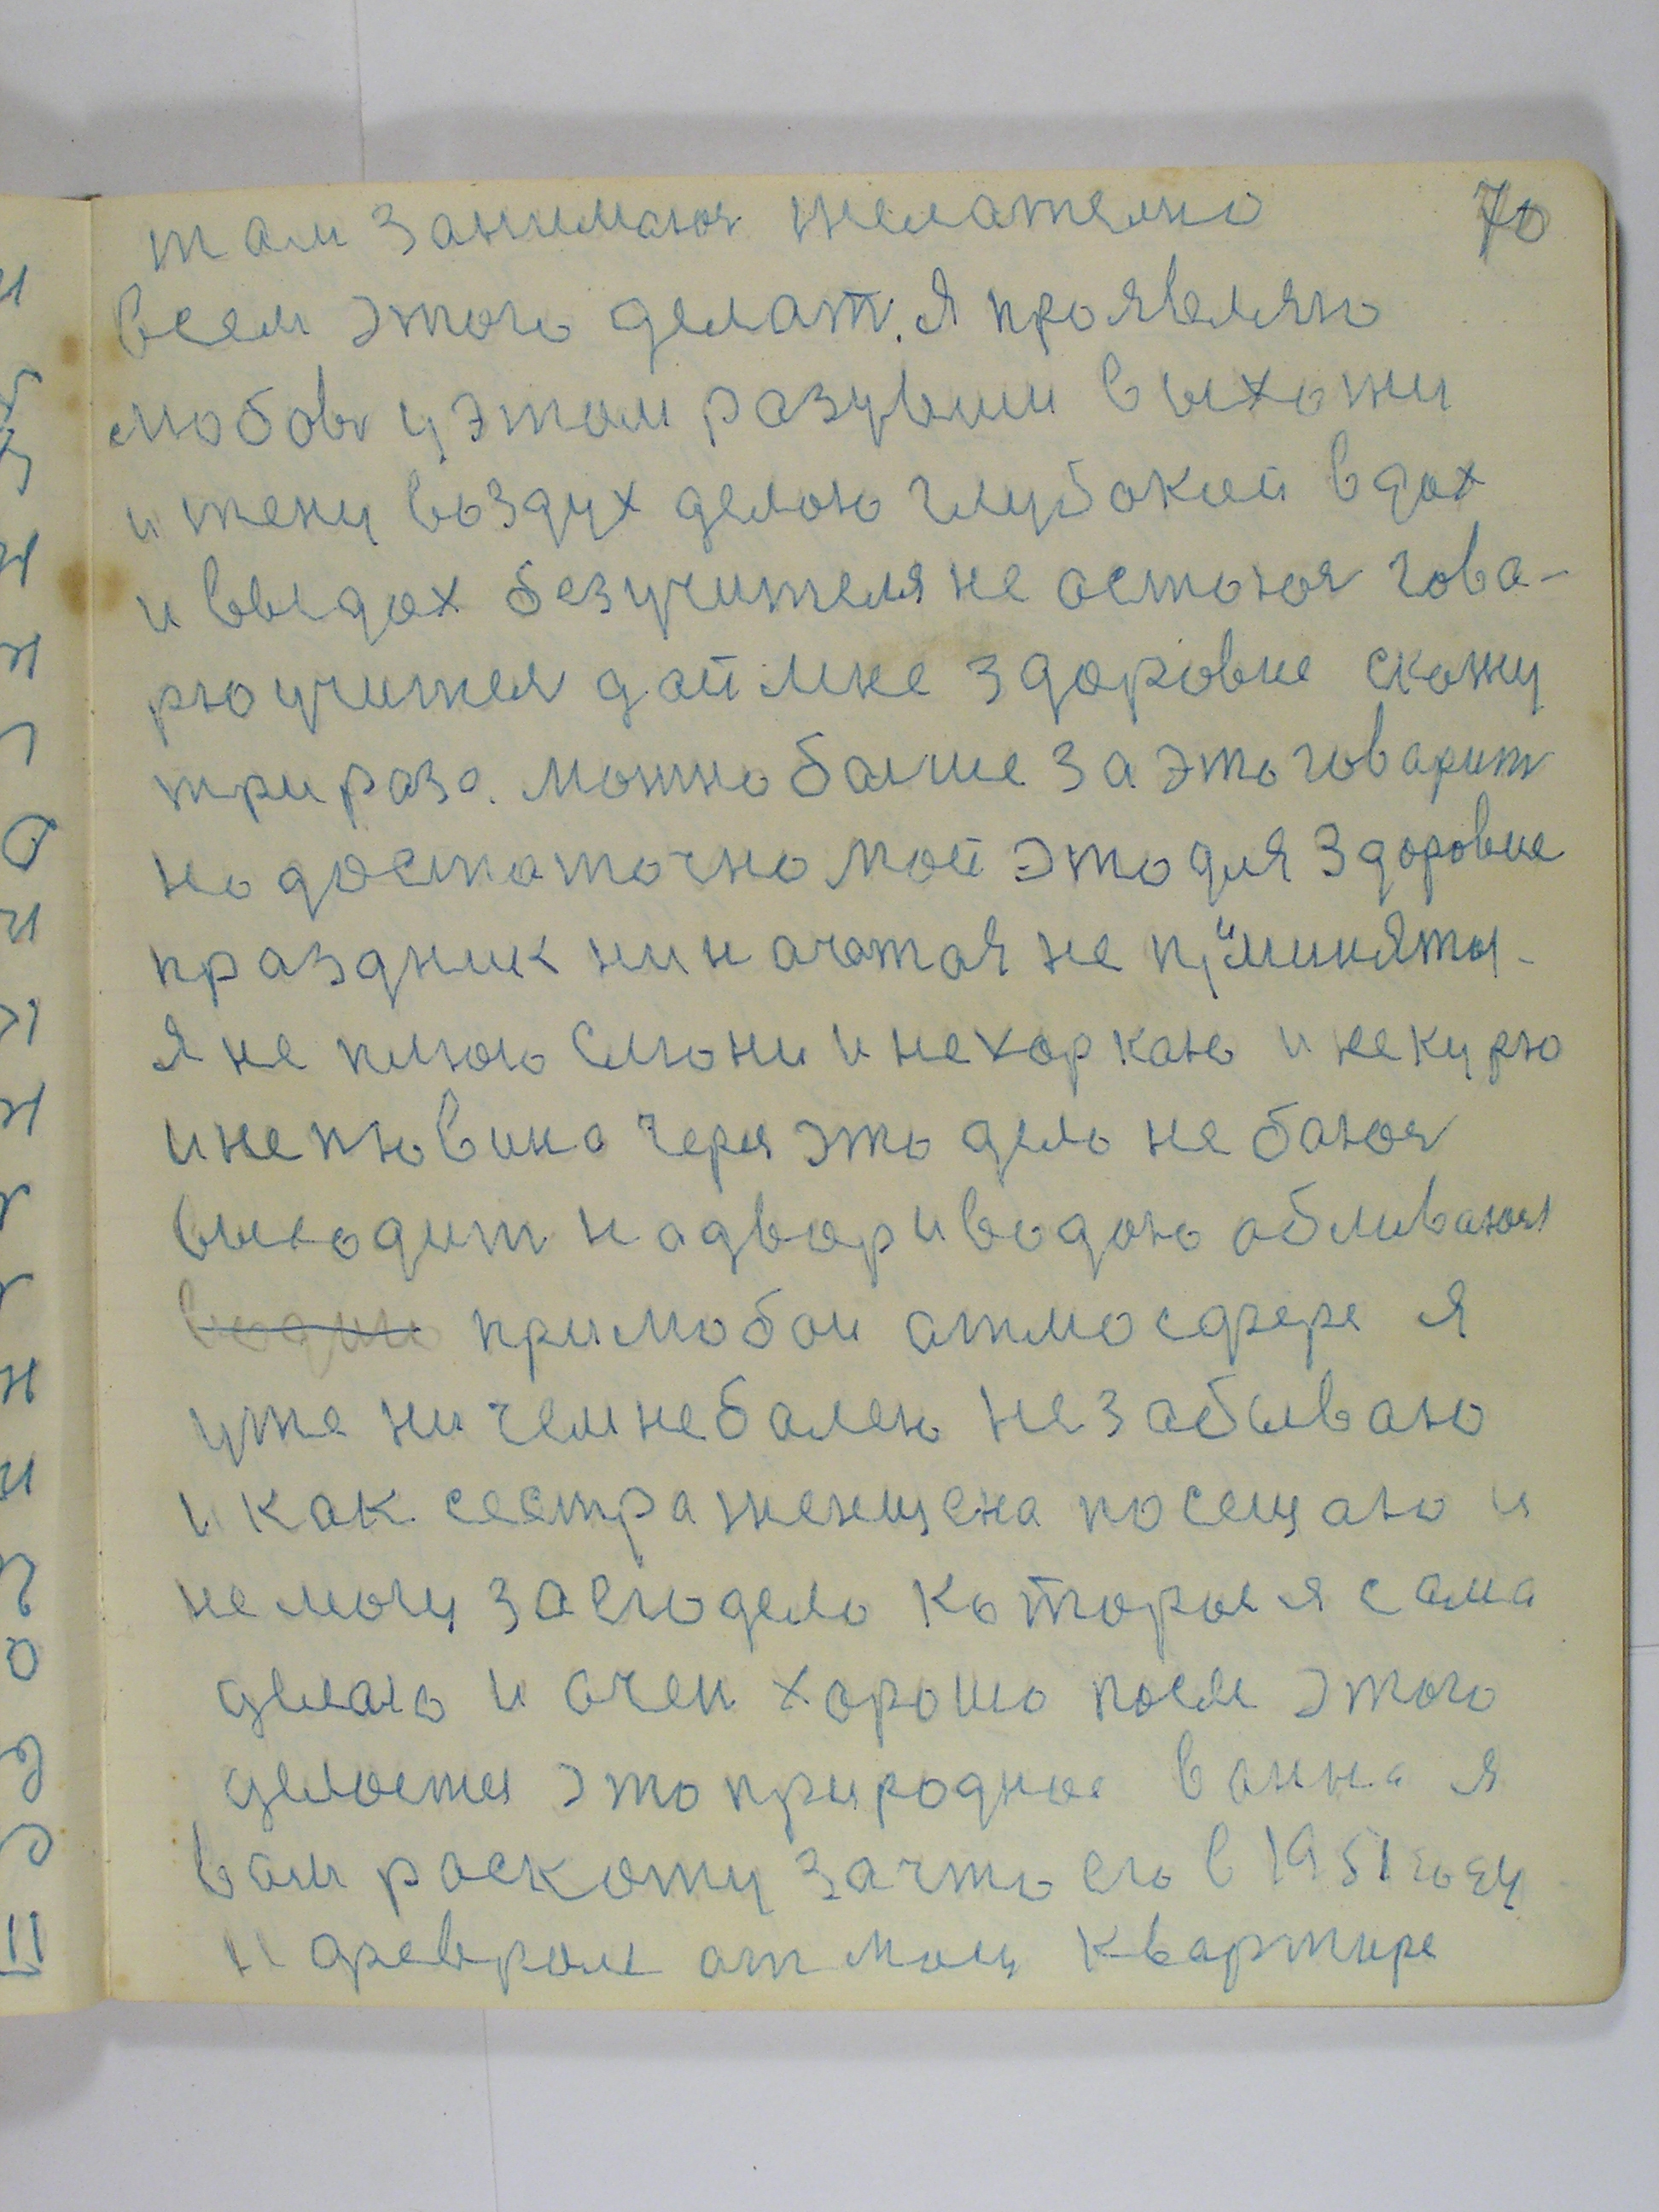 70
там занимаюся желателно
всем этого делат. Я проявеляю
любовь у этом разувши выхожи
и тену воздух делаю глубокий вдох
и выдох без учителя не астаюся гова-
рю учителя дай мне здоровие скажу
три раза. можно балше за это говарит
но достаточно мой это для здоровие
праздник ни
Я не плюю слюни и не харкаю и не курю
и не пю вино через это дело не баюся
выходит на двор и водою абливаюся
при любои атмосфере я
уже ни чем не балею не забываю
и как сестра женщена посещаю и
не могу за его дело которые я сама
делаю и очен хорошо после этого
делается это природное ванна я
вам раскажу за что его в 1951 году
и феврале ат моц квартире